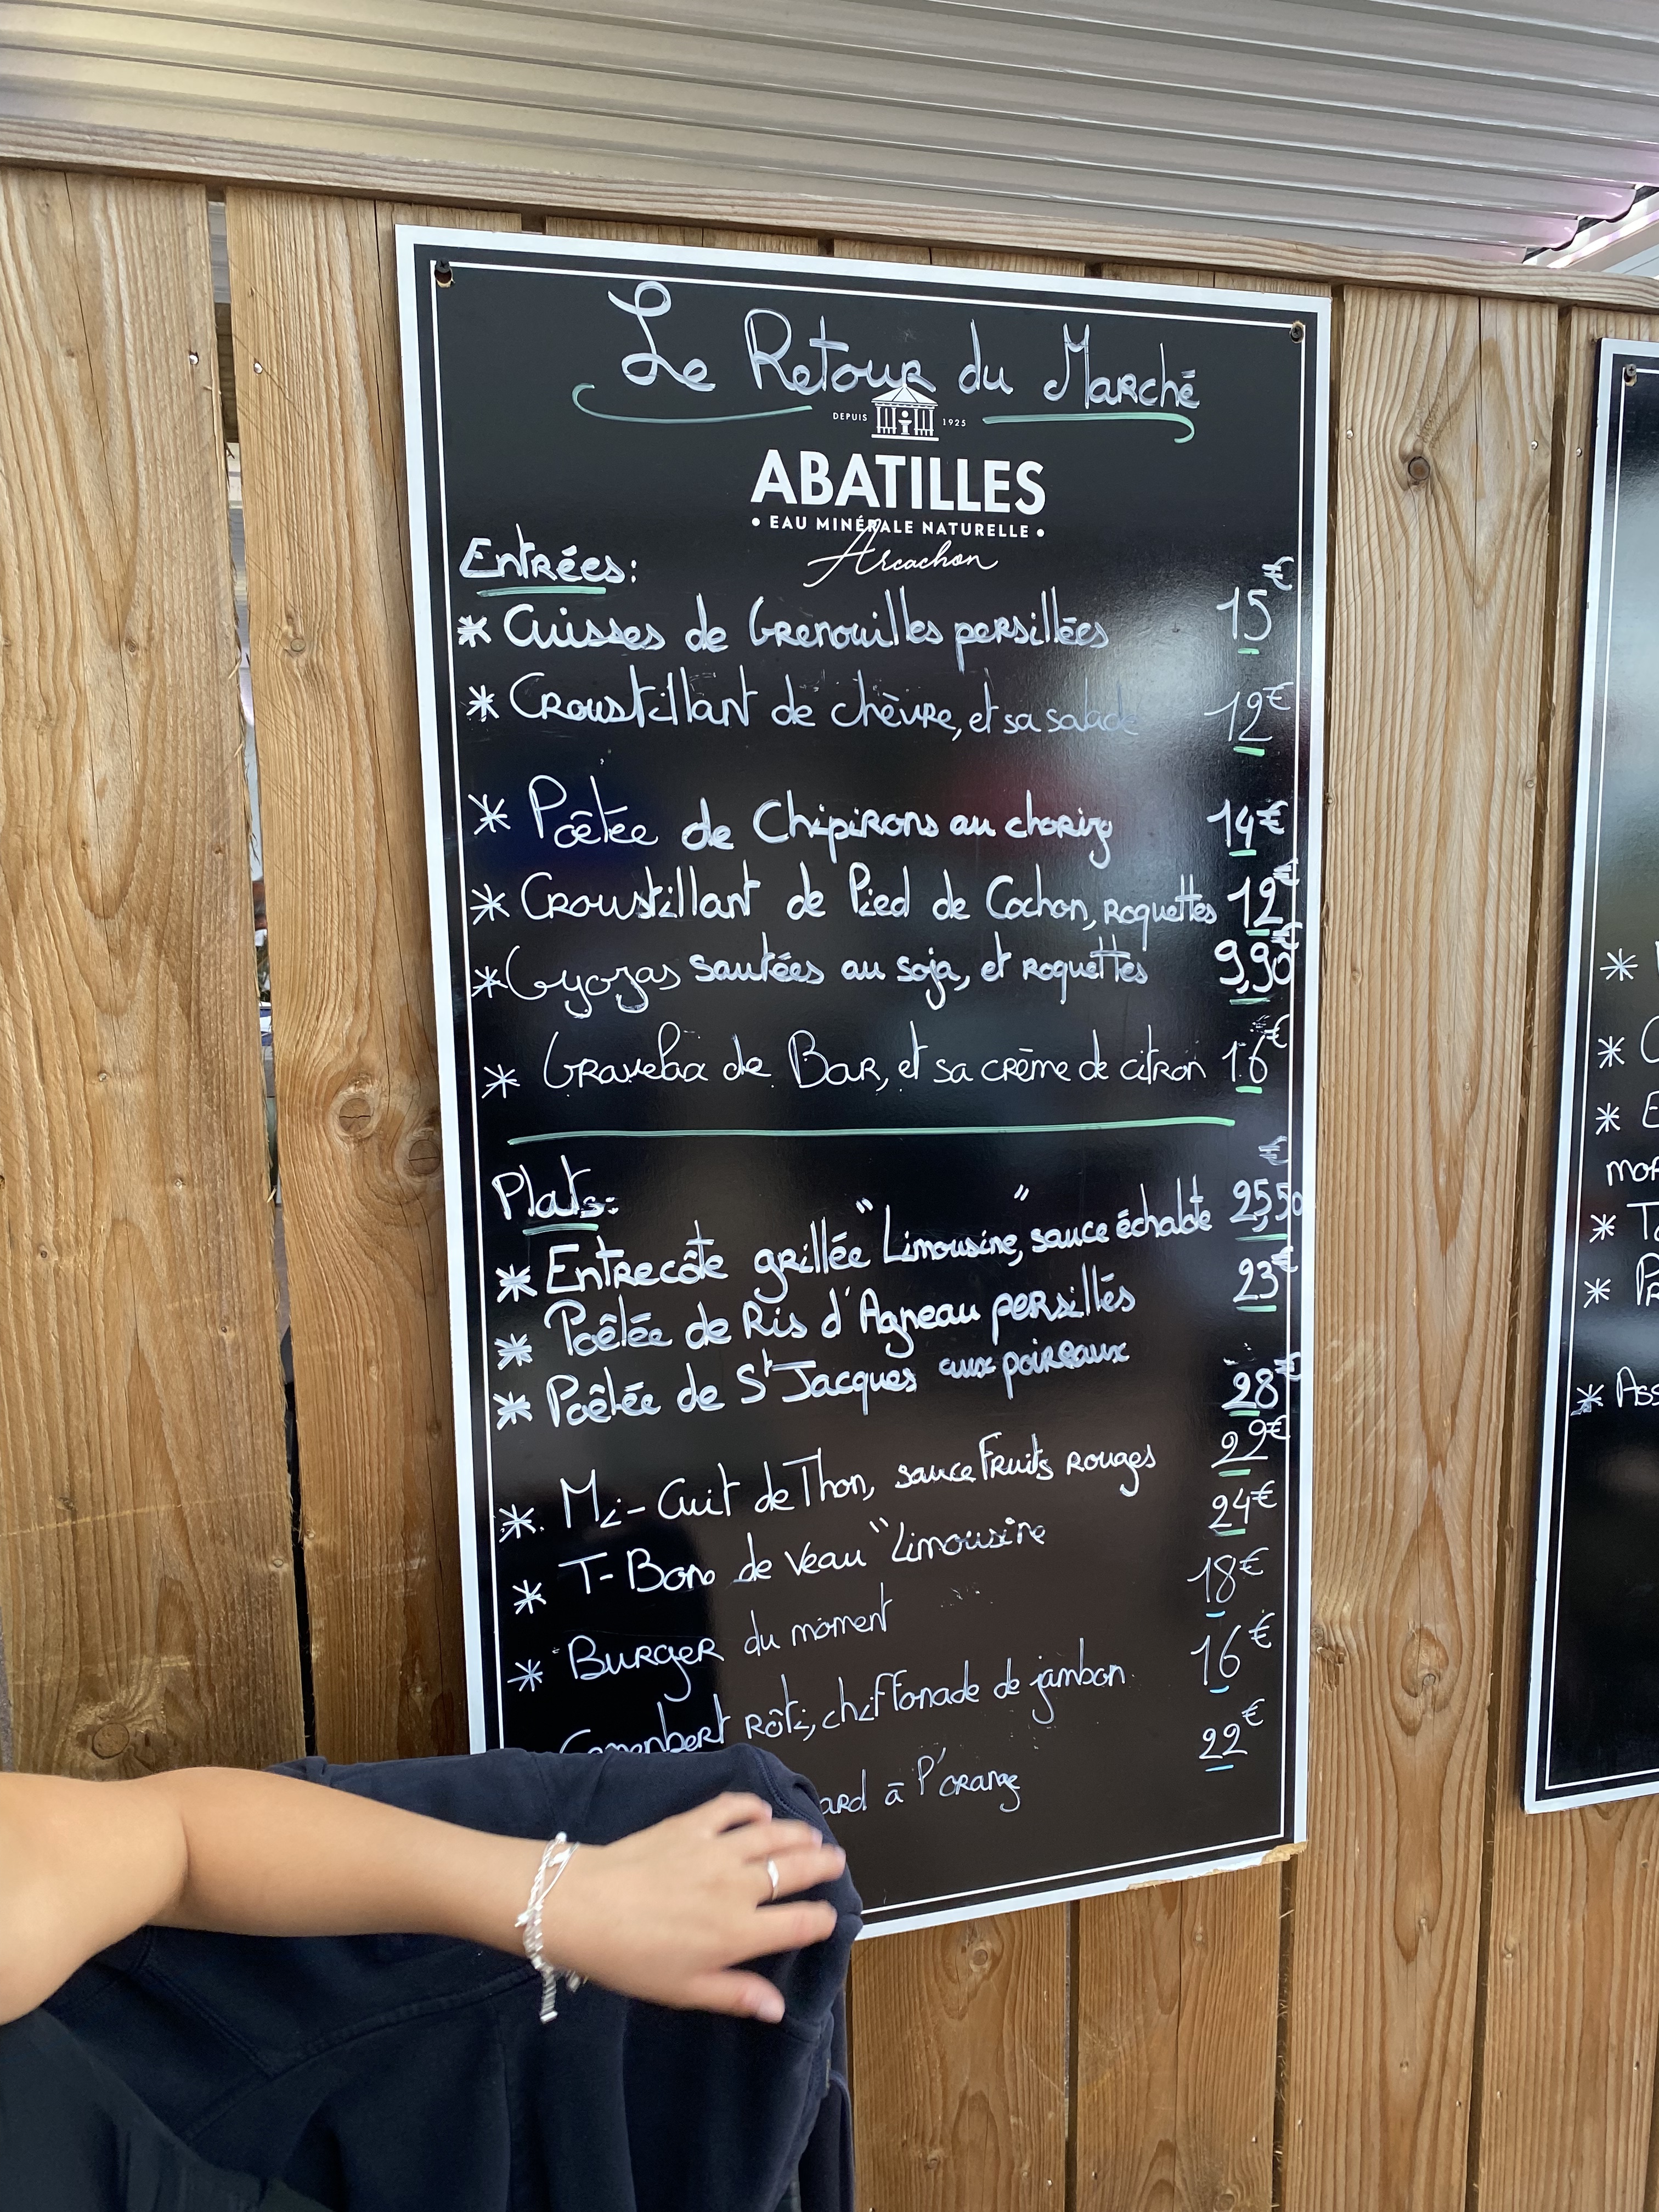 Le Retour du Marché
DEPUIS 1925
ABATILLES
• EAU MINÉRALE NATURELLE •
Arcachon
Entrées:
* Cuisses de Grenouilles persillées 15€
* Croustillant de chèvre, et sa salade 12€
* Poêlée de Chipirons au chorizo 14€
* Croustillant de Pied de Cochon, roquettes 12€
* Gyozas sautées au soja, et roquettes 9,90€
* Gravelax de Bar, et sa crème de citron 16€
Plats:
* Entrecôte grillée "Limousine", sauce échalote 25,50€
* Poêlée de Ris d'Agneau persillés 23€
* Poêlée de St Jacques aux poireaux 28€
* Mi-Cuit de Thon, sauce Fruits rouges 22€
* T-Bone de Veau "Limousine 24€
* Burger du moment 18€
Camembert Rôti, chiffonade de jambon 16€
ard à l'orange 22€
*
* C
* E
mor
* T
* Pr
* Ass